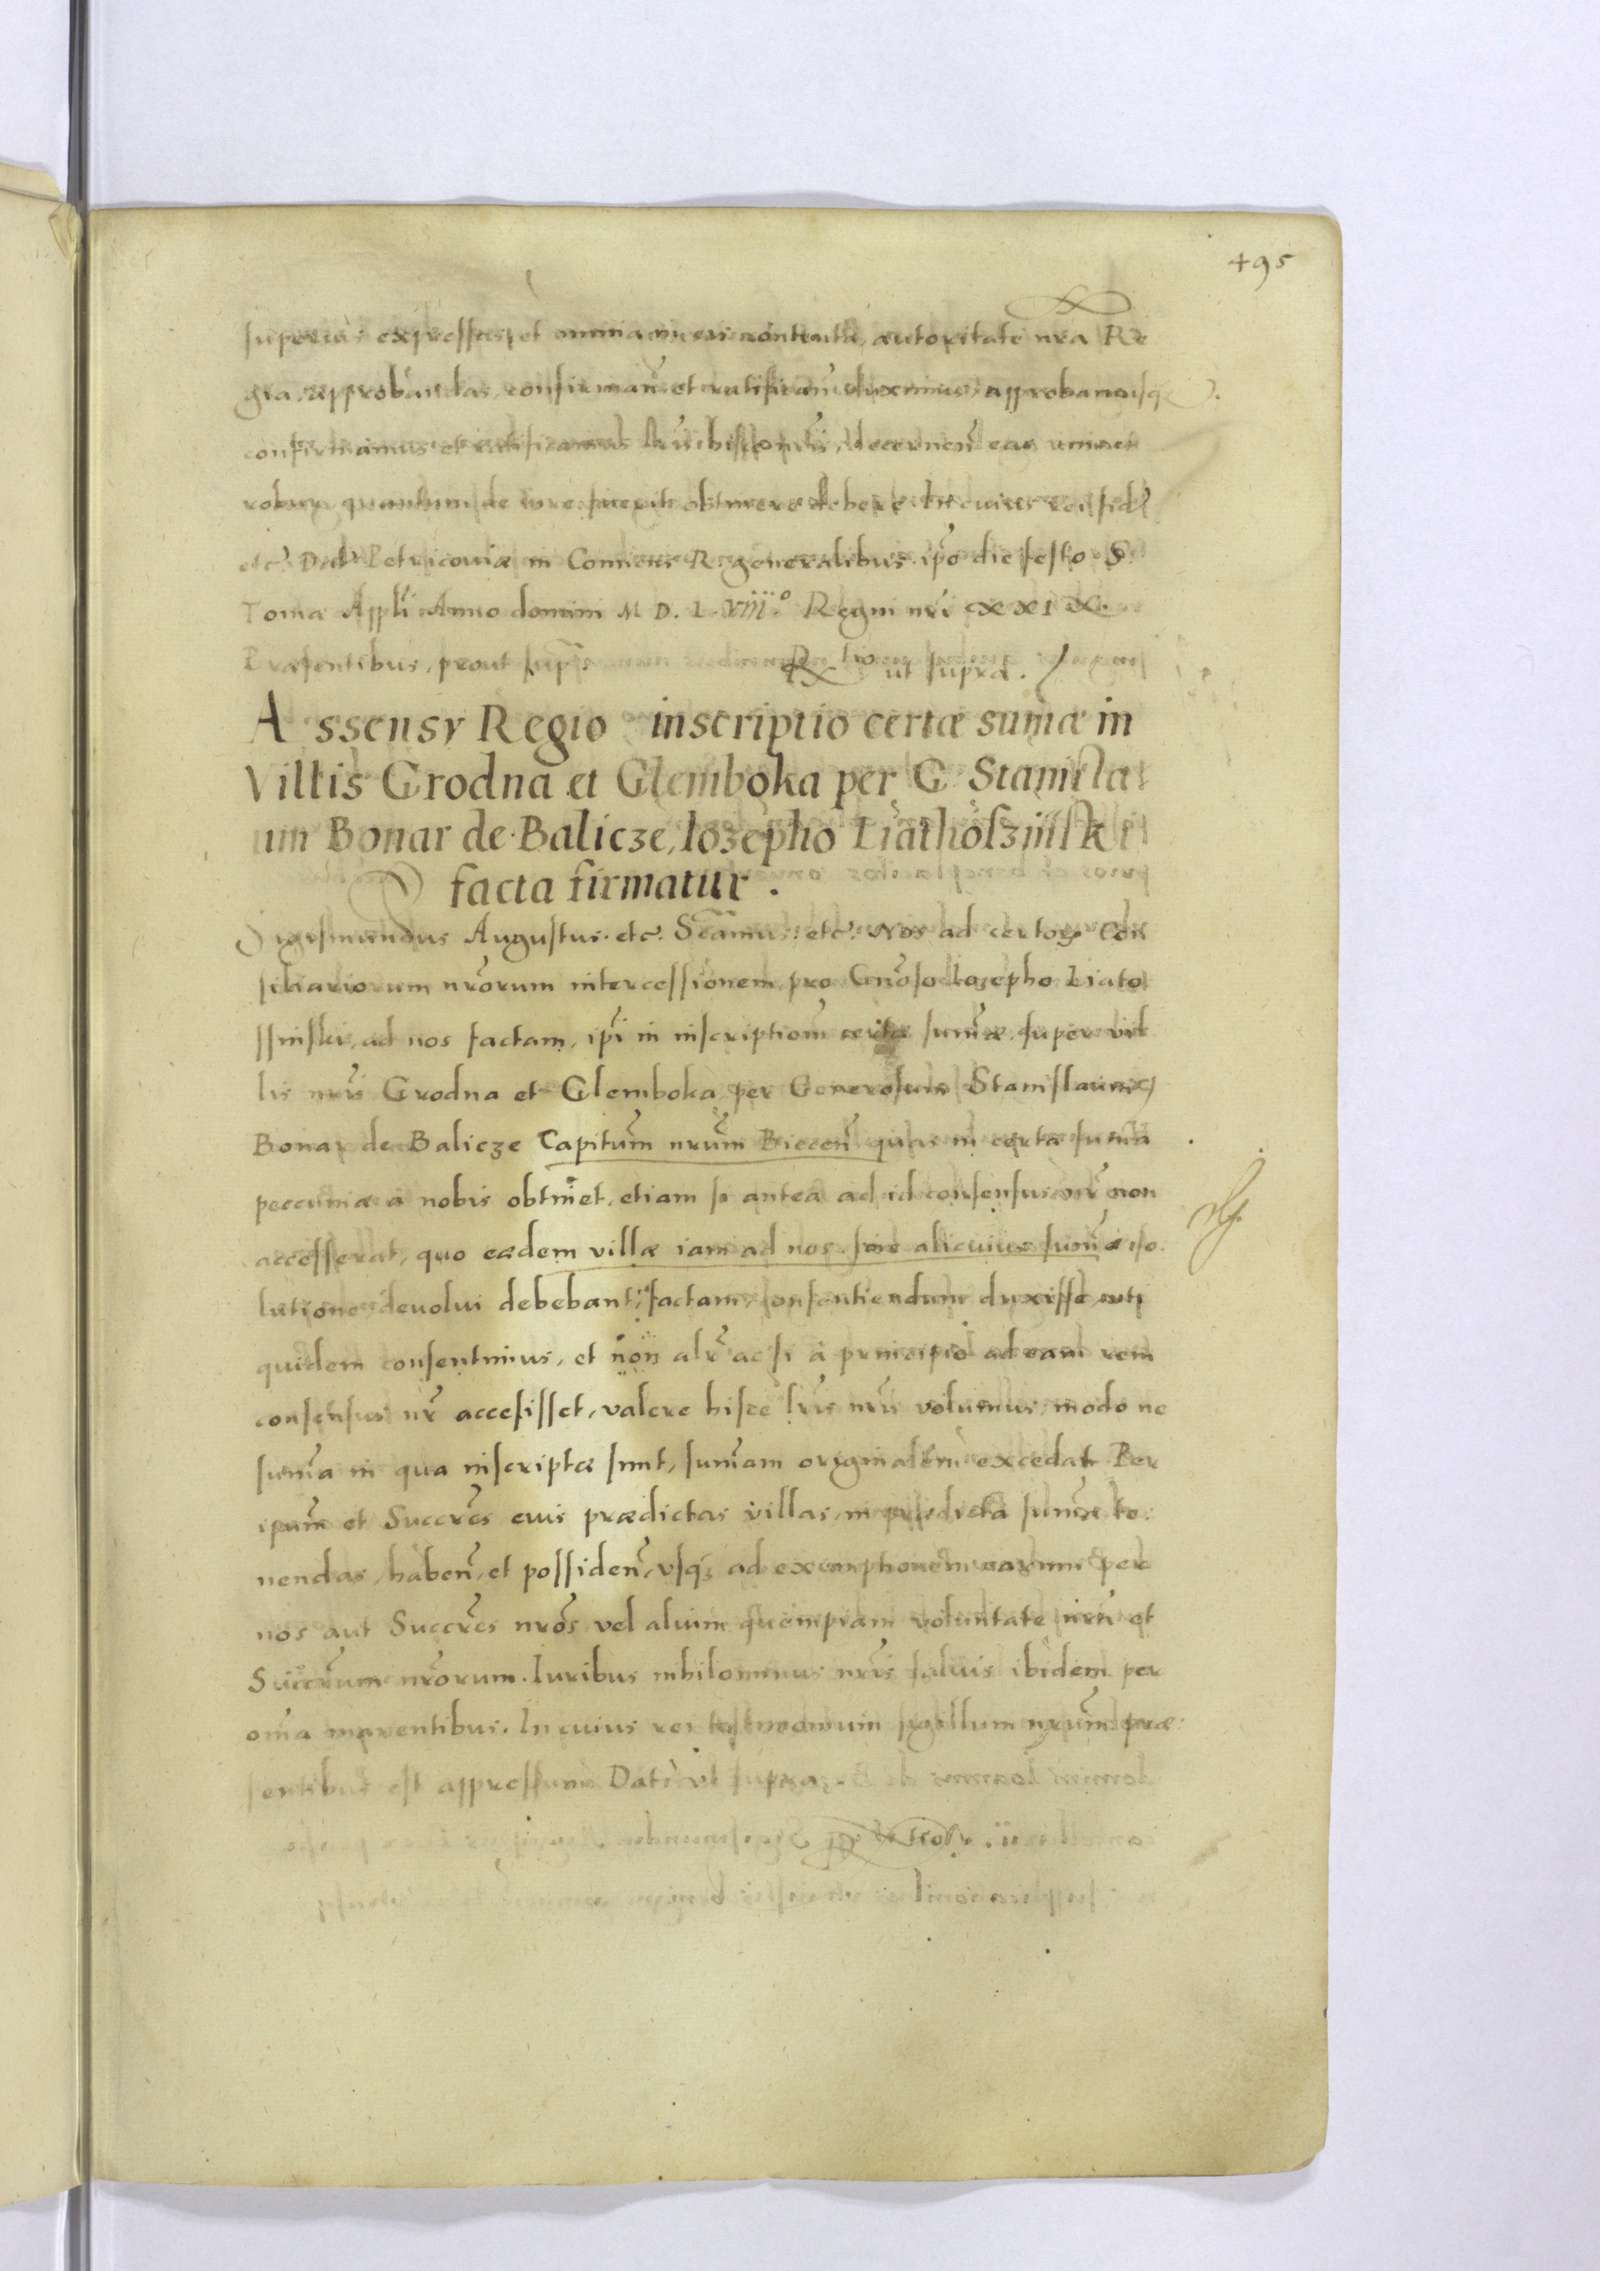 495
superius expressas, et omnia in eis contenta, autoritate nra Re
gia approbandas, confirman̄ et ratifican̄ duximus, approbamusq̨
confirmamus et ratificamus lrīs hisce nrīs, decernen̄
robur quantum de iure fuerit obtinere debere. In cuius rei fid
etc. Dat Petricoviæ in Comiciis R. generalibus. ipō die festo S.
Tomæ Appli Anno domini M D. L. viii.º Regni nrī XXIX.
Præsentibus, prout supra ut supra.
Assensv Regio inscriptio certæ sum̄æ in
Villis Grodna et Glemboka per G. Stanisla
um Bonar de Balicze, Iozepho Liatholszinski
facta firmatur.
Sigismundus Augustus. etc. Scāmus. etc. Nos ad certor Con
siliariorum nrōrum intercessionem, pro Gnōso Iozepho Liato
ssinski, ad nos factam, ipī in inscriptionē certæ sum̄æ, super vil
lis nrīs Grodna et Glemboka, per Generosum Stanislaum
Bonar de Balicze Capitum̄ nrum̄ Biecen̄ quas in certa sum̄a
peccuniæ a nobis obtinet, etiam si antea ad id consensus nr̄ non
accesserat, quo eædem villæ iam ad nos sine alicuius sum̄æ so
lutione devolui debebant, factam, consentiendum duxisse, uti
quidem consentimus, et non alr̄ ac si à principio ad eam rem
consensus nr̄ accesisset, valere hisce lrīs nrīs volumus, modo ne
sum̄a in qua inscriptæ sunt, sum̄am originalem excedat. Per
ipum̄ et Succrēs eius prædictas villas, in prædicta sum̄a te:
nendas, haben̄, et possiden̄, vsq̨ ad exemptionem earum per
nos aut Succrēs nrōs vel alium quempiam voluntate nrā et
Succrum̄ nrōrum. Iuribus nihilominus nrīs saluis ibidem per
om̄ia manentibus. In cuius rei testimonium sigillum nrum̄ præ:
sentibus est appressum. Dat ut supra.